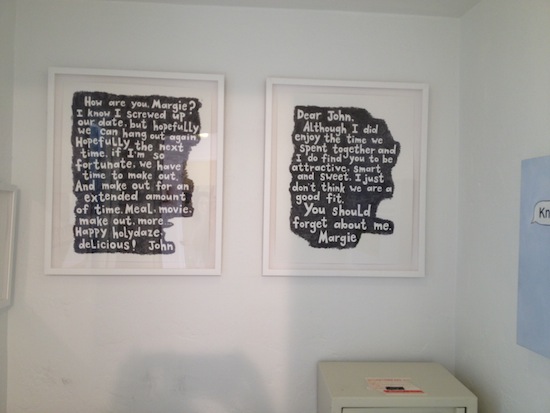 How are you, Margie?
I know I screwed up
our date, but hopefully
we can hang out again.
Hopefully the next
time, if I'm so
fortunate, we have
time to make out.
And make out for an
extended amount
of time. Meal, movie,
make out, more.
Happy holydaze,
delicious! John
Dear John,
Although I did
enjoy the time we
spent together and
I do find you to be
attractive, smart
and sweet, I just
don't think we are a
good fit.
You should
forget about me.
Margie
Kn